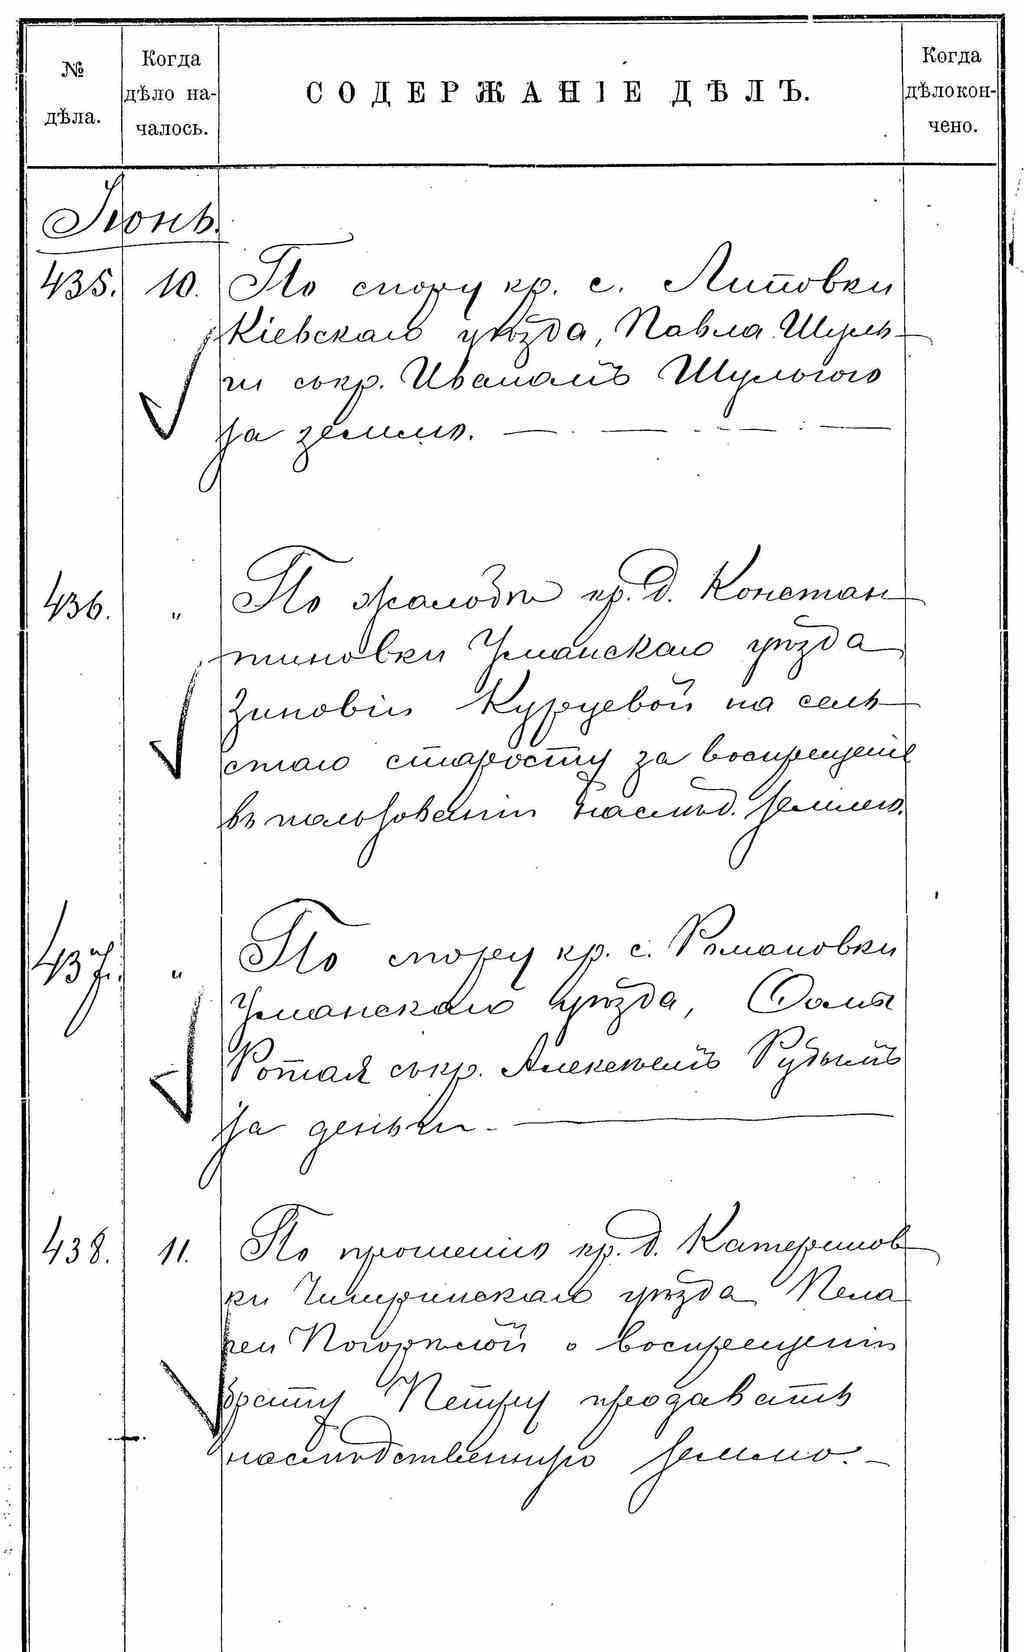 № дѣла.
Когда дѣло на-
чалось.
СОДЕРЖАНІЕ ДѢЛЪ.
Когда дѣло кон-
чено.
Іюнь.
435. 10. По спору кр. с. Липовки
Кіевскаго уѣзда, Павла Шуль-
ги съ кр. Иваномъ Шульгою
за землю.
436. " По жалобѣ кр. д. Констан-
тиновки Уманскаго уѣзда
Зиновіи Курцевой на сель-
скаго старосту за воспрещеніе
въ пользованіи наслѣд. землею.
437. " По спору кр. с. Романовки
Уманскаго уѣзда, Ѳомы
Ротая съ кр. Алексѣемъ Рудымъ
за деньги.
438. 11. По прошенію кр. д. Катеринов-
ки Чигиринскаго уѣзда Пела
геи Погорѣлой о воспрещеніи
брату Петру продавать
наслѣдственную землю.